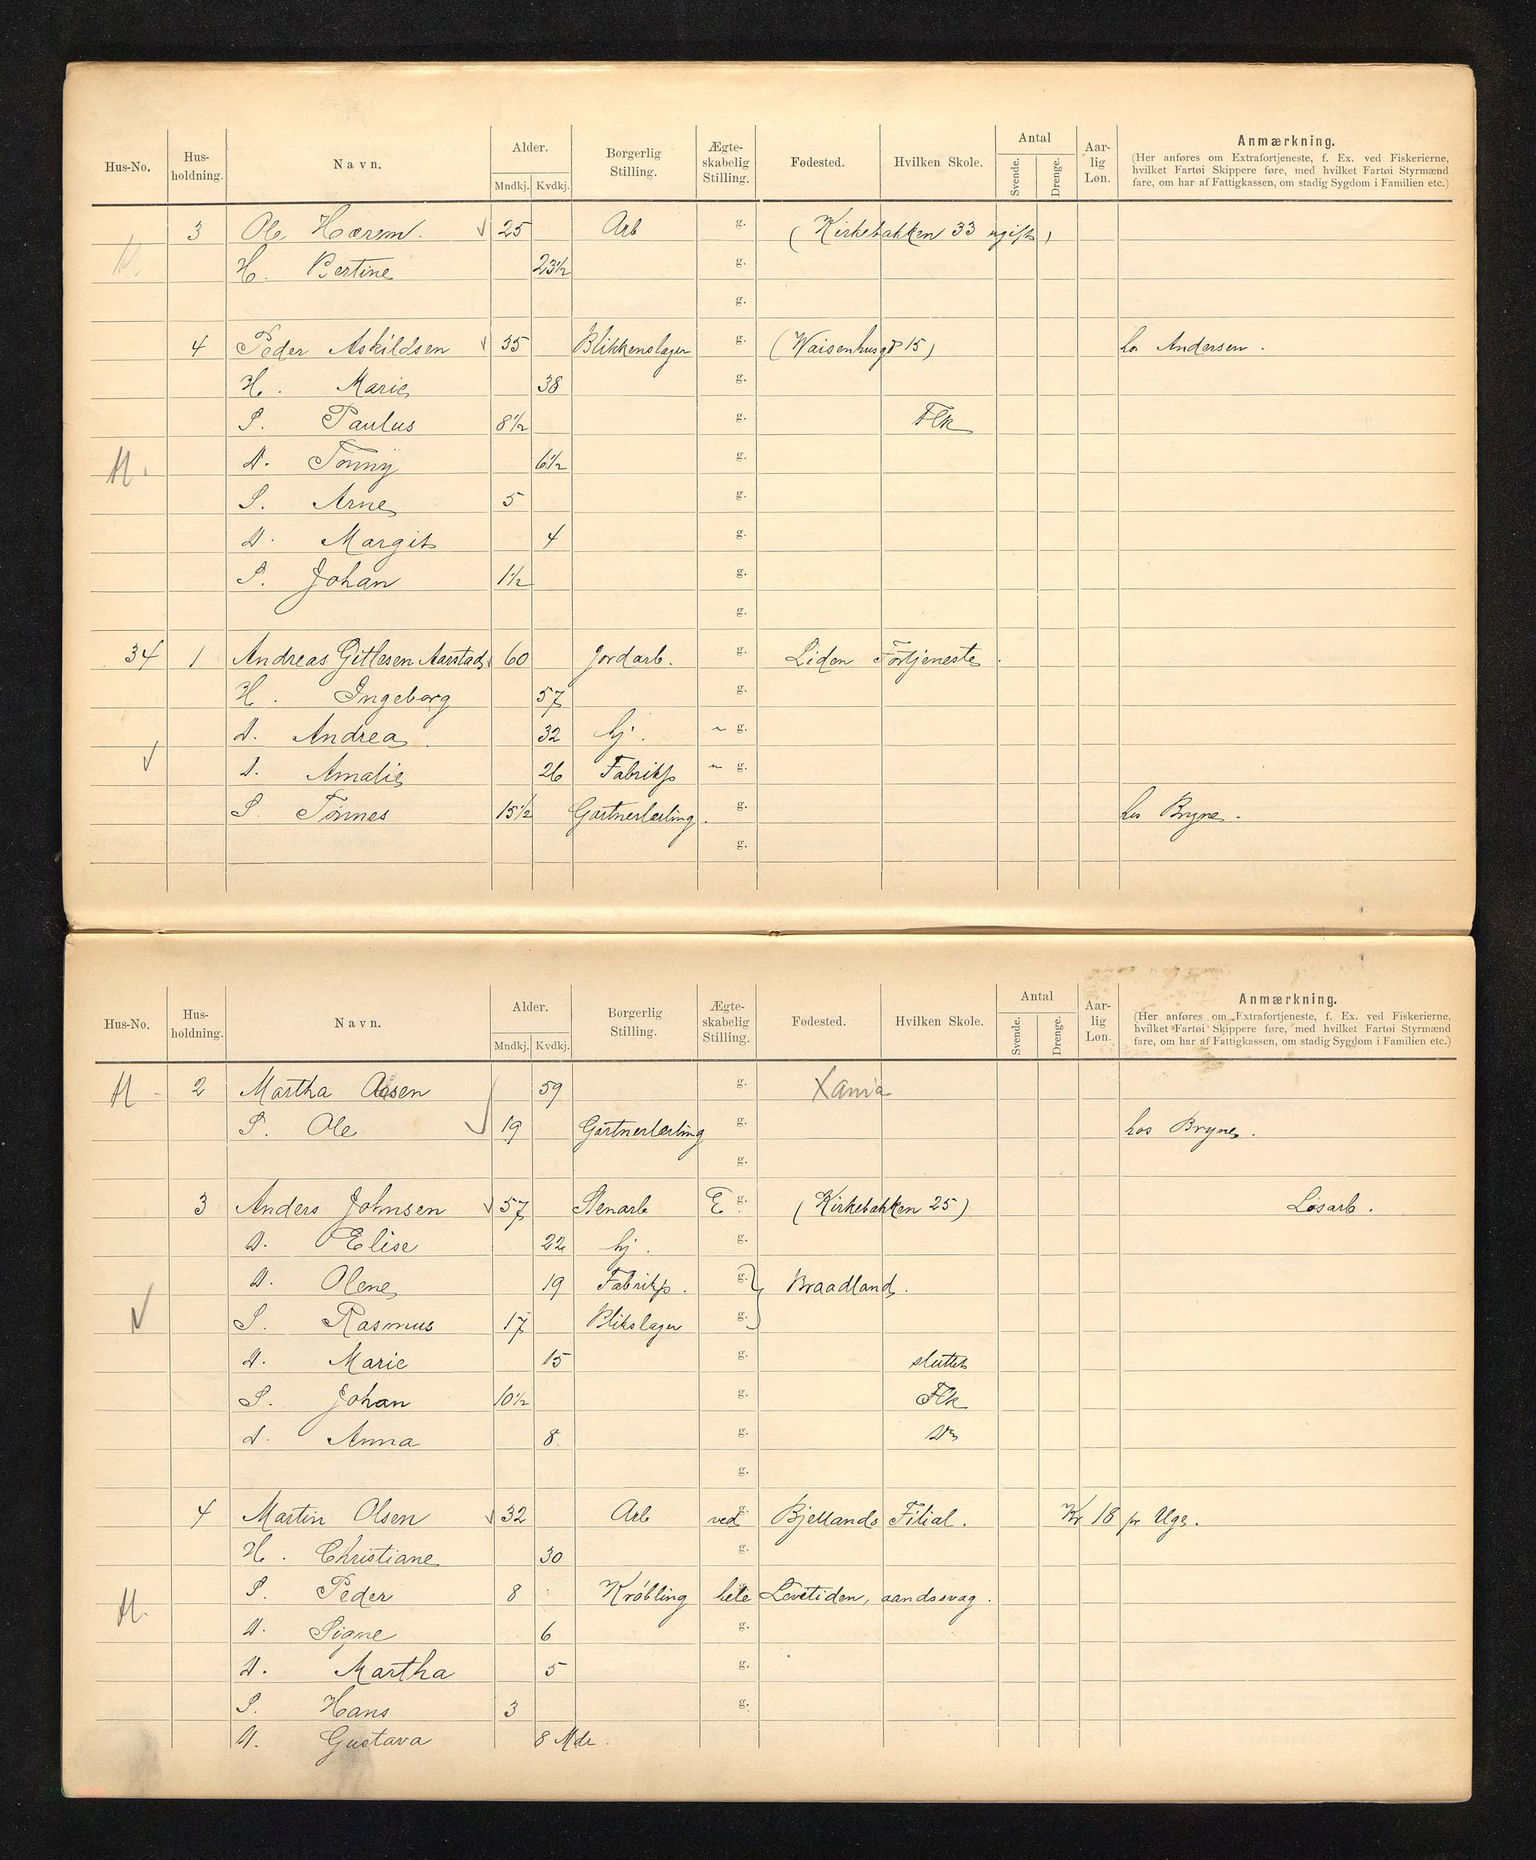 Hus-No. Hus-holdning. Navn. Alder. Mndkj. Kvdkj. Borgerlig Stilling. Ægte-skabelig Stilling. Fødested. Hvilken Skole. Antal Svende. Drenge. Aar-lig Løn. Anmærkning.
(Her anføres om Extrafortjeneste, f. Ex. ved Fiskerierne, hvilket Fartøi Skippere føre, med hvilket Fartøi Styrmænd fare, om har af Fattigkassen, om stadig Sygdom i Familien etc.)
3 Ole Hærem. √ 25 Arb g. (Kirkebakken 33 ugift)
H. H. Bertine 23½ g.
g.
4 Peder Askildsen √ 35 Blikkenslager g. (Waisenhusgd 15) hos Andersen.
H. Marie 38 g.
S. Paulus 8½ g. Flk
H. D. Tonny 6½ g.
S. Arne 5 g.
D. Margit 4 g.
S. Johan 1½ g.
g.
34 1 Andreas Gitlesen Aarstad √ 60 Jordarb. g. Liden Fortjeneste.
H. Ingeborg 57 g.
D. Andrea. 32 hj. " g.
√ D. Amalie 26 Fabrikp " g.
S. Tønnes 15½ Gartnerlærling. g. hos Bryne.
g.
Hus-No. Hus-holdning. Navn. Alder. Mndkj. Kvdkj. Borgerlig Stilling. Ægte-skabelig Stilling. Fødested. Hvilken Skole. Antal Svende. Drenge. Aar-lig Løn. Anmærkning.
(Her anføres om Extrafortjeneste, f. Ex. ved Fiskerierne, hvilket Fartøi Skippere føre, med hvilket Fartøi Styrmænd fare, om har af Fattigkassen, om stadig Sygdom i Familien etc.)
H. 2 Martha 59 g. Xania
S. Ole √ 19 Gartnerlærling g. hos Bryne.
g.
3 Anders Johnsen √ 57 Stenarb E g. (Kirkebakken 25) Løsarb.
D. Elise 22 hj. g.
D. Olene 19 Fabrikp. g. } Braadland.
√ S. Rasmus 17 Blikslager g.
D. Marie 15 g. sluttet
S. Johan 10½ g. Flk
d. Anna 8 g. Do
g.
4 Martin Olsen √ 32 Arb ved g. Bjellands Filial. Kr 18 pr Uge.
H. Christiane 30 g.
H. S. Peder 8 Krøbling hele Levetiden, aandssvag.
D. Signe 6 g.
D. Martha 5 g.
S. Hans 3 g.
D. Gustava 8 Mdr.